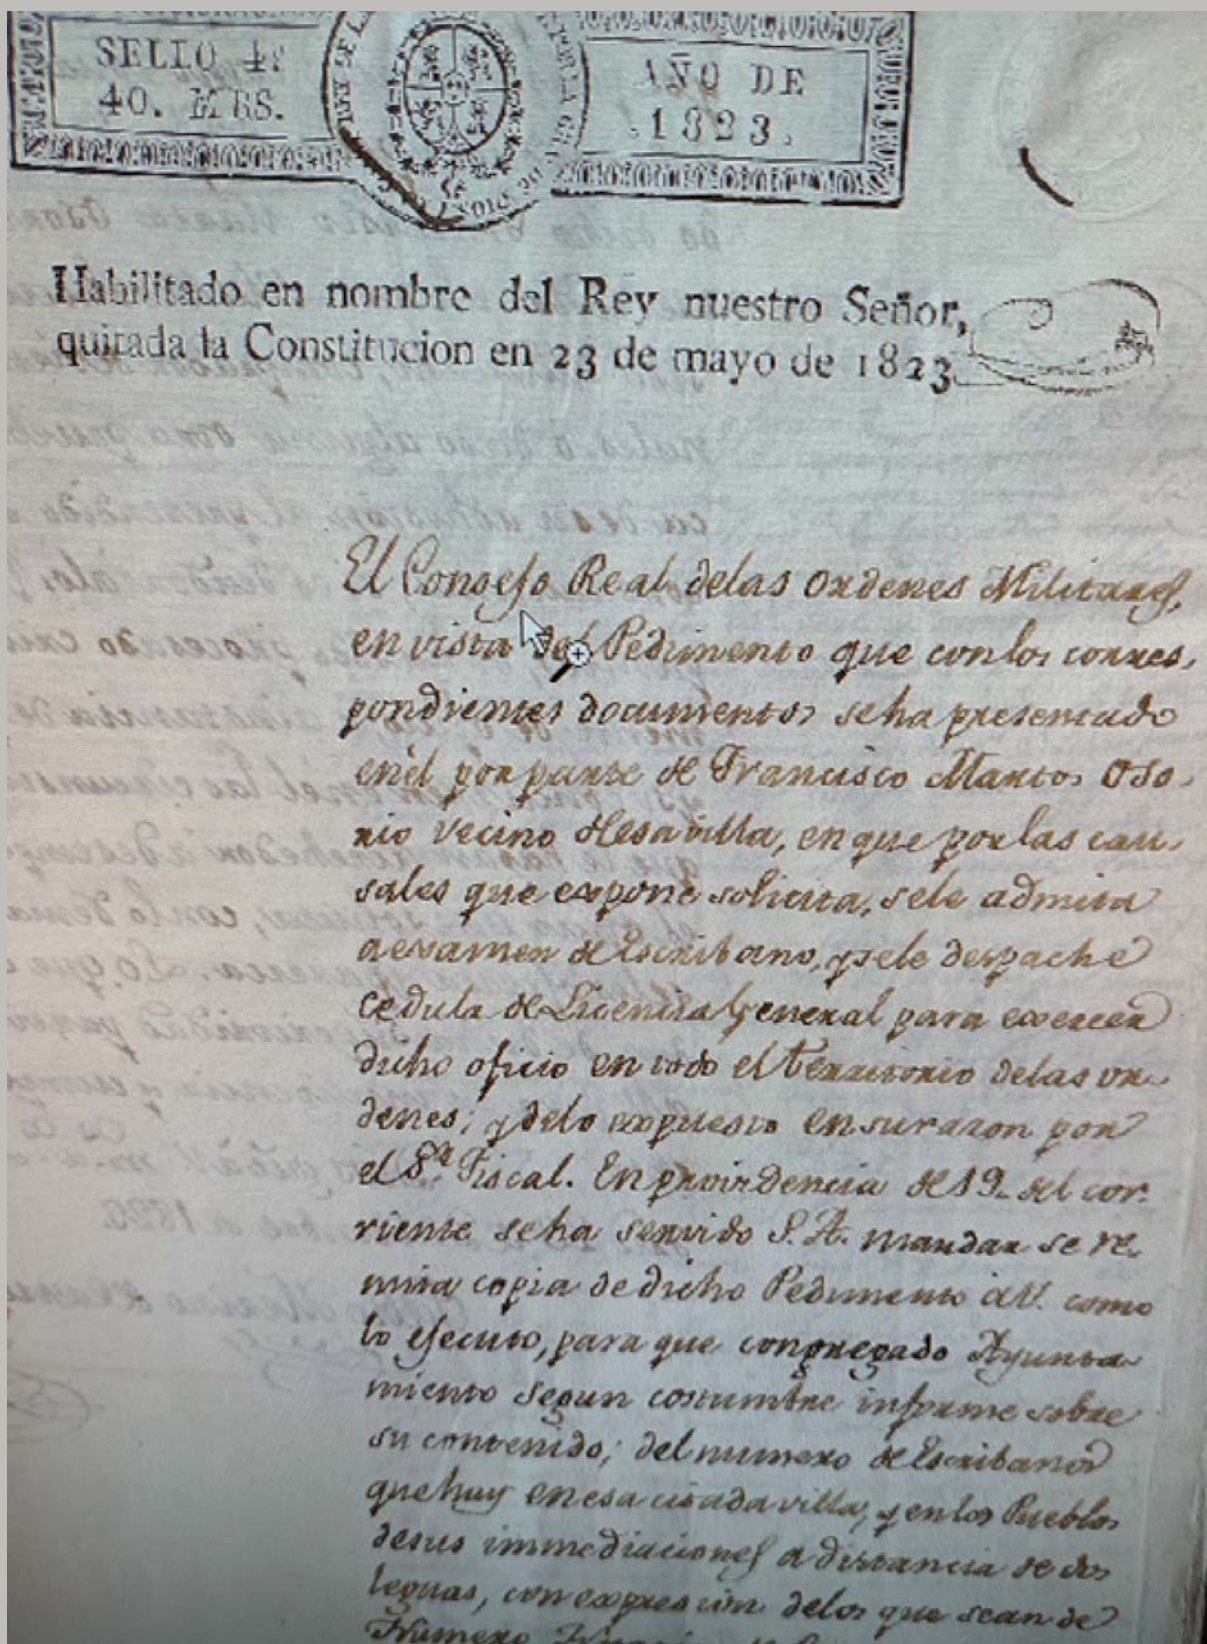 SELLO 4º
40. MRS.
AÑO DE
1823.
Habilitado en nombre del Rey nuestro Señor,
quitada la Constitucion en 23 de mayo de 1823.
El Consejo Real delas Ordenes Militares,
en vista del Pedimento que conlos corres,
pondientes documentos seha presentado
enèl por parte de Francisco Marcos Oso,
rio vecino deesa villa, en que por las cau,
sales que expone solicita, sele admita
aexamen de Escribano, y sele despache
cedula de Licencia General para exercer
dicho oficio en todo el territorio delas or,
denes; y delo expuesto ensurazon por
el Sr. Fiscal. En providencia de 19. del cor,
riente seha servido S. A. mandar se re,
mita copia de dicho Pedimento à V. como
lo ejecuto, para que congregado Ayunta,
miento segun costumbre informe sobre
su contenido; del numero de Escribanos
que hay en esa citada villa, y en los Pueblos
desus immediaciones a distancia de dos
leguas, con expresion delos que sean de
Numero